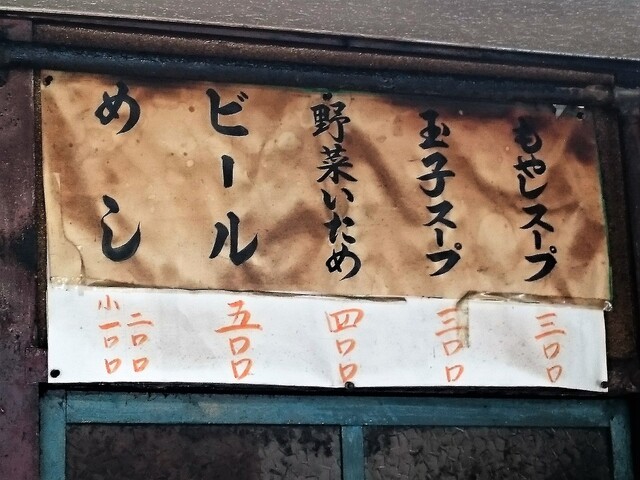 もやしスープ
三〇〇
玉子スープ
三〇〇
野菜いため
四〇〇
ビール
五〇〇
めし
二〇〇
小一〇〇